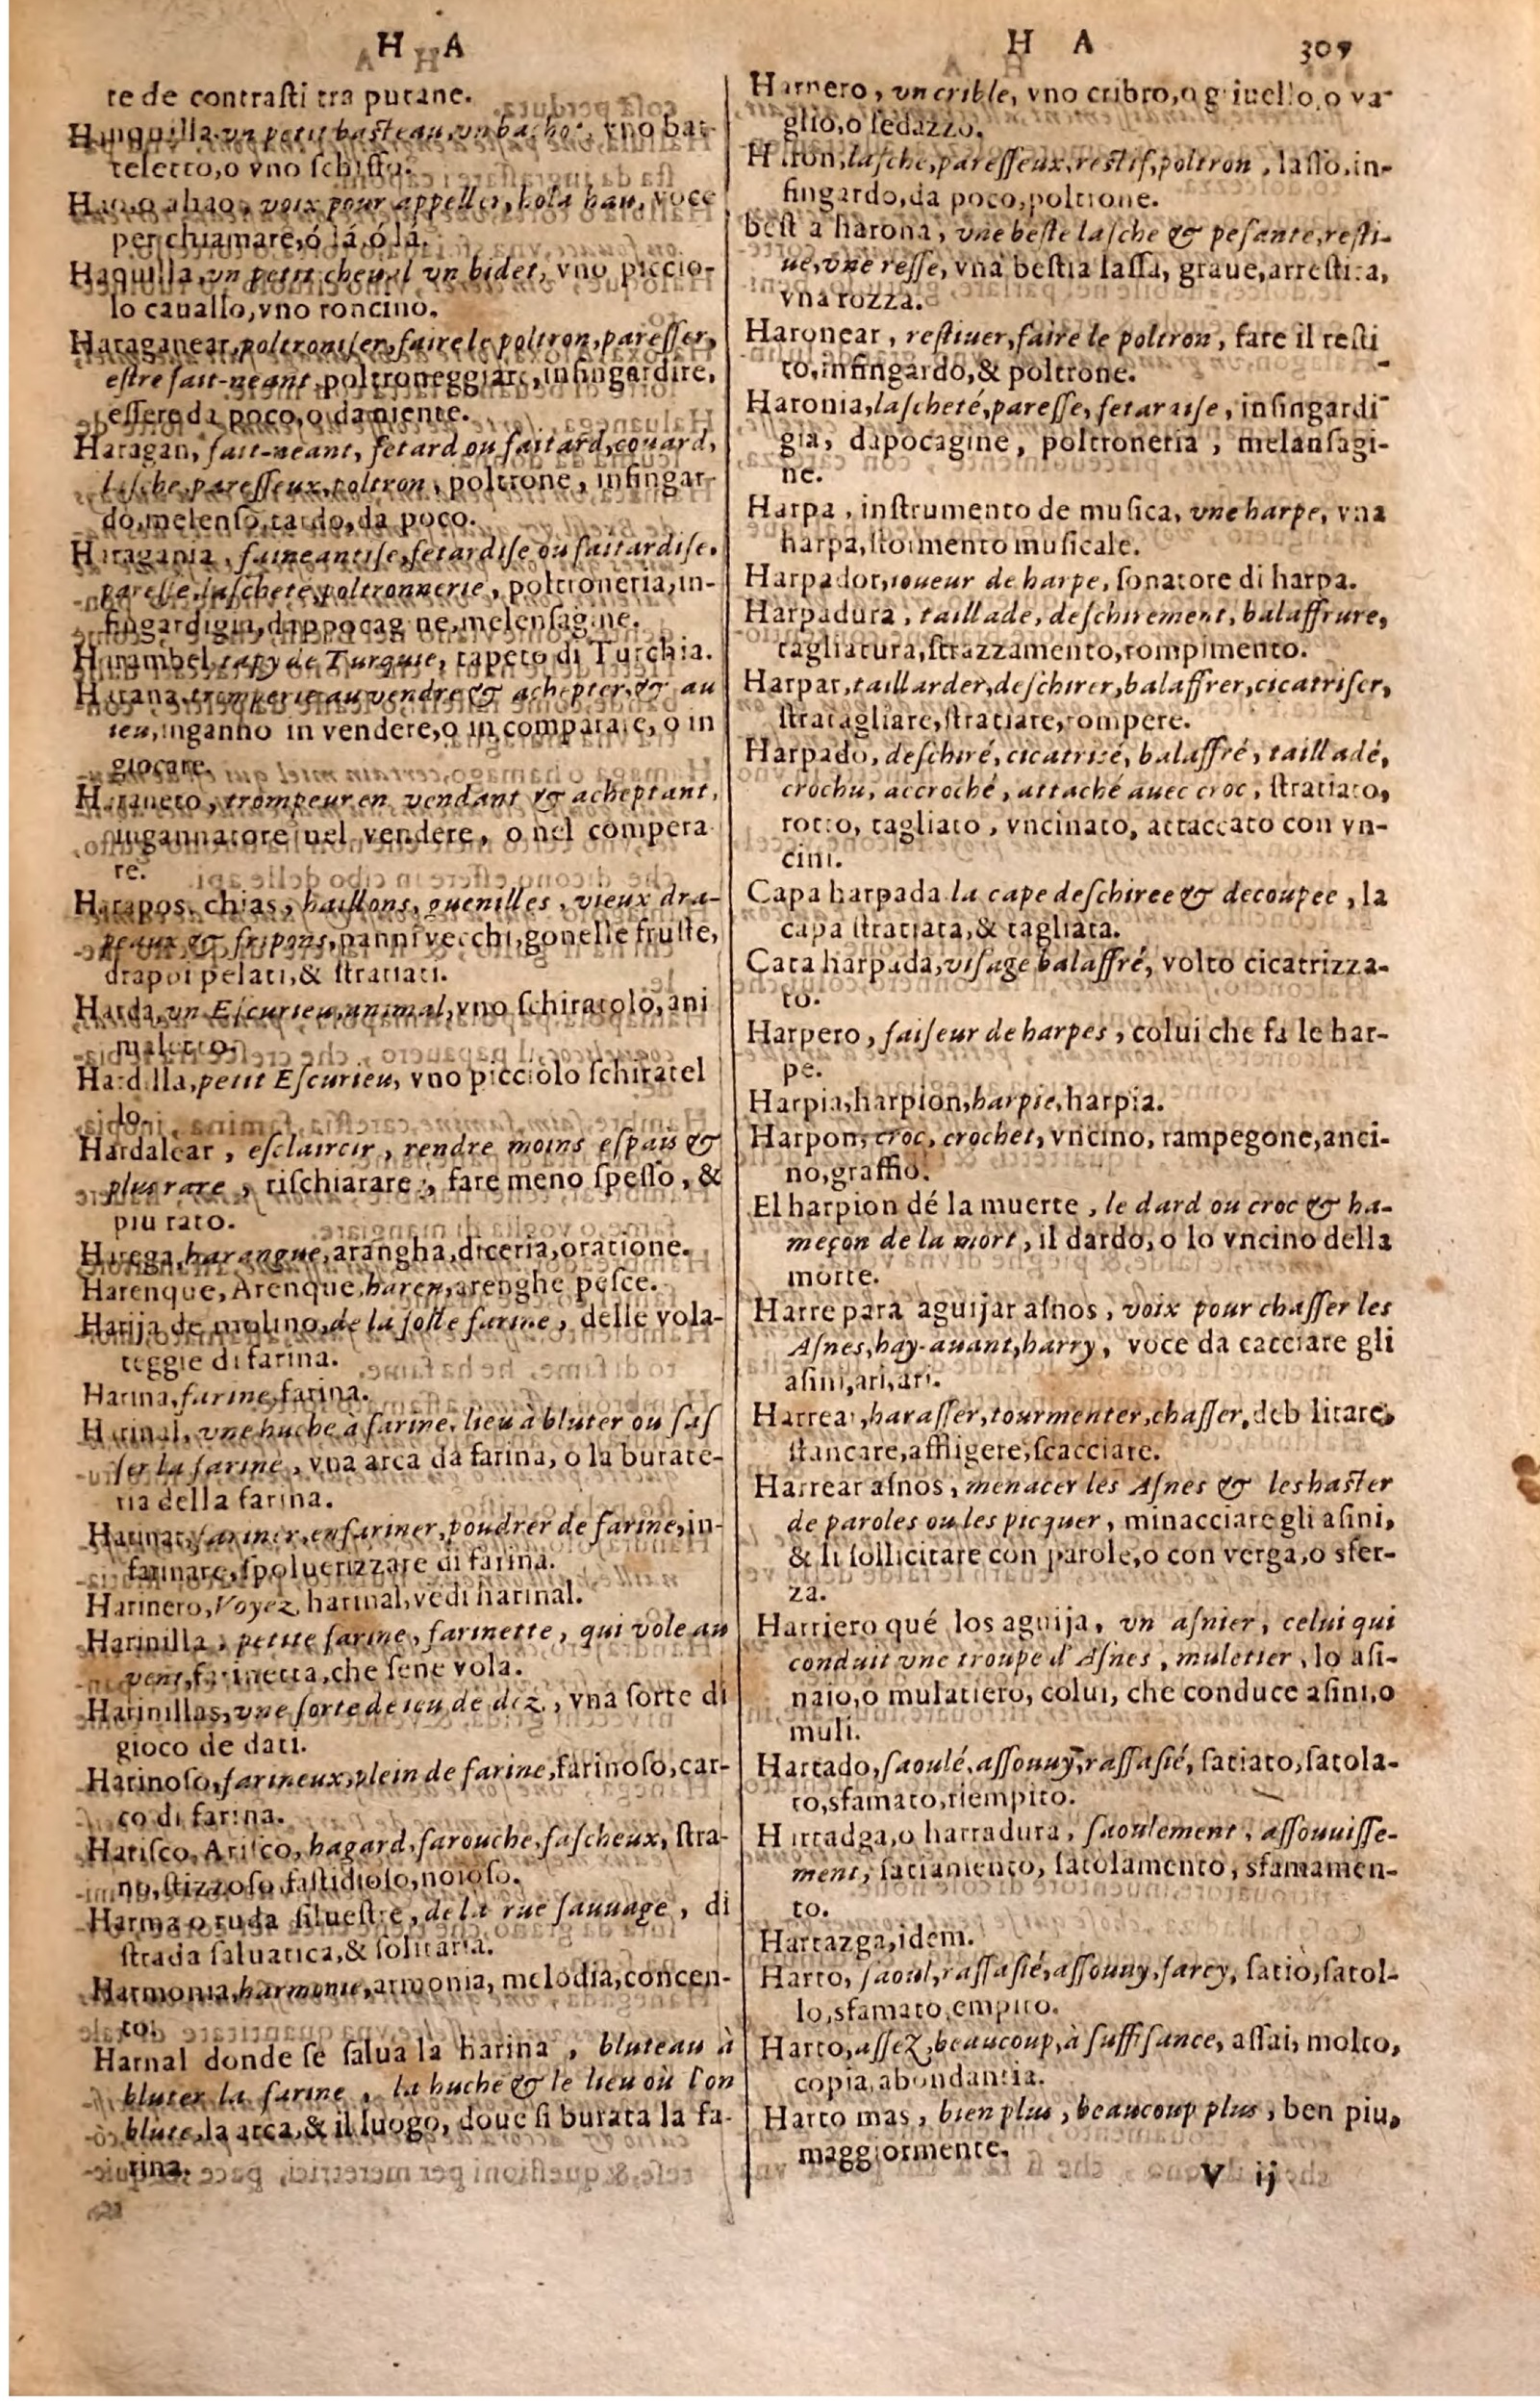 H A
te de contrasti tra putane.
Hanquilla, vn petit basteau, vn bachot, vno bat-
telecto, o vno schiffo.
Hao, o ahao, voix pour appeller, hola hau, voce
per chiamare, ó lá, ó lá.
Haquilla, vn petit cheual vn bidet, vno piccio-
lo cauallo, vno roncino.
Haraganear, poltroniser, faire le poltron, paresser,
estre fait-neant, poltroneggiare, infingardire,
essere da poco, o da niente.
Haragan, fait-neant, fetard ou faitard, couard,
lasche, paresseux, poltron, poltrone, infingar-
do, melenso, tardo, da poco.
Haragania, faineantise, fetardise ou faitardise,
paresse, lascheté, poltronnerie, poltroneria, in-
fingardigia, dappocagine, melensagine.
Harambel, tapy de Turquie, tapeto di Turchia.
Harana, tromperie au vendre & achepter, & au
ieu, inganno in vendere, o in comparare, o in
giocare.
Haraneto, trompeur en vendant & acheptant,
ingannatore nel vendere, o nel compera
re.
Harapos, chias, haillons, guenilles, vieux dra-
peaux & fripons, panni vecchi, gonelle fruste,
drappi pelati, & stratiati.
Harda, vn Escurieu, animal, vno schiratolo, ani
maletto.
Hardilla, petit Escurieu, vno picciolo schiratel
lo.
Hardalear, esclaircir, rendre moins espais &
plus rare, rischiarare, fare meno spesso, &
piu raro.
Harega, harangue, arangha, diceria, oratione.
Harenque, Arenque, haren, arenghe pesce.
Harija de molino, de la folle farine, delle vola-
teggie di farina.
Harina, farine, farina.
Harinal, vne huche à farine, lieu à bluter ou sas
ser la farine, vna arca da farina, o la burate-
ria della farina.
Harinar, fariner, enfariner, poudrer de farine, in-
farinare, spoluerizzare di farina.
Harinero, Voyez harinal, vedi harinal.
Harinilla, petite farine, farinette, qui vole au
vent, farinetta, che sene vola.
Harinillas, vne sorte de ieu de dez, vna sorte di
gioco de dati.
Harinoso, farineux, plein de farine, farinoso, car-
co di farina.
Harisco, Arisco, hagard, farouche, fascheux, stra-
no, stizzoso, fastidioso, noioso.
Harma o ruda siluestre, de la rue sauuage, di
strada saluatica, & solitaria.
Harmonia, harmonie, armonia, melodia, concen-
to.
Harnal donde se salua la harina, bluteau à
bluter la farine, la huche & le lieu où l'on
blute, la arca, & il luogo, doue si burata la fa-
rina.
H A 309
Harnero, vn crible, vno cribro, o giuello, o va-
glio, o sedazzo.
Haron, lasche, paresseux, restif, poltron, lasso, in-
fingardo, da poco, poltrone.
best a harona, vne beste lasche & pesante, resti-
ue, vne resse, vna bestia lassa, graue, arrestita,
vna rozza.
Haronear, restiuer, faire le poltron, fare il resti
to, infingardo, & poltrone.
Haronia, lascheté, paresse, fetaraise, infingardi-
gia, dapocagine, poltroneria, melansagi-
ne.
Harpa, instrumento de musica, vne harpe, vna
harpa, stormento musicale.
Harpador, ioueur de harpe, sonatore di harpa.
Harpadura, taillade, deschirement, balaffrure,
tagliatura, strazzamento, rompimento.
Harpar, taillarder, deschirer, balaffrer, cicatriser,
stratagliare, stratiare, rompere.
Harpado, deschiré, cicatrisé, balaffré, tailladé,
crochu, accroché, attaché auec croc, stratiato,
rotto, tagliato, vncinato, attaccato con vn-
cini.
Capa harpada la cape deschiree & decoupee, la
capa stratiata, & tagliata.
Cara harpada, visage balaffré, volto cicatrizza-
to.
Harpero, faiseur de harpes, colui che fa le har-
pe.
Harpia, harpion, harpie, harpia.
Harpon, croc, crochet, vncino, rampegone, anci-
no, graffio.
El harpion dé la muerte, le dard ou croc & ha-
meçon de la mort, il dardo, o lo vncino della
morte.
Harre para aguijar asnos, voix pour chasser les
Asnes, hay-auant, harry, voce da cacciare gli
asini, ari, ari.
Harrear, harasser, tourmenter, chasser, debilitare,
stancare, affligere, scacciare.
Harrear asnos, menacer les Asnes & les haster
de paroles ou les picquer, minacciare gli asini,
& li sollicitare con parole, o con verga, o sfer-
za.
Harriero qué los aguija, vn asnier, celui qui
conduit vne troupe d'Asnes, muletier, lo asi-
naio, o mulatiero, colui, che conduce asini, o
muli.
Hartado, saoulé, assouuy, rassasié, satiato, satola-
to, sfamato, riempito.
Hartadga, o harradura, saoulement, assouuisse-
ment, satiamento, satolamento, sfamamen-
to.
Hartazga, idem.
Harto, saoul, rassasié, assouuy, farcy, satiò, satol-
lo, sfamato, empito.
Harto, assez, beaucoup, à suffisance, assai, molto,
copia, abondantia.
Harto mas, bien plus, beaucoup plus, ben piu,
maggiormente.
V ij